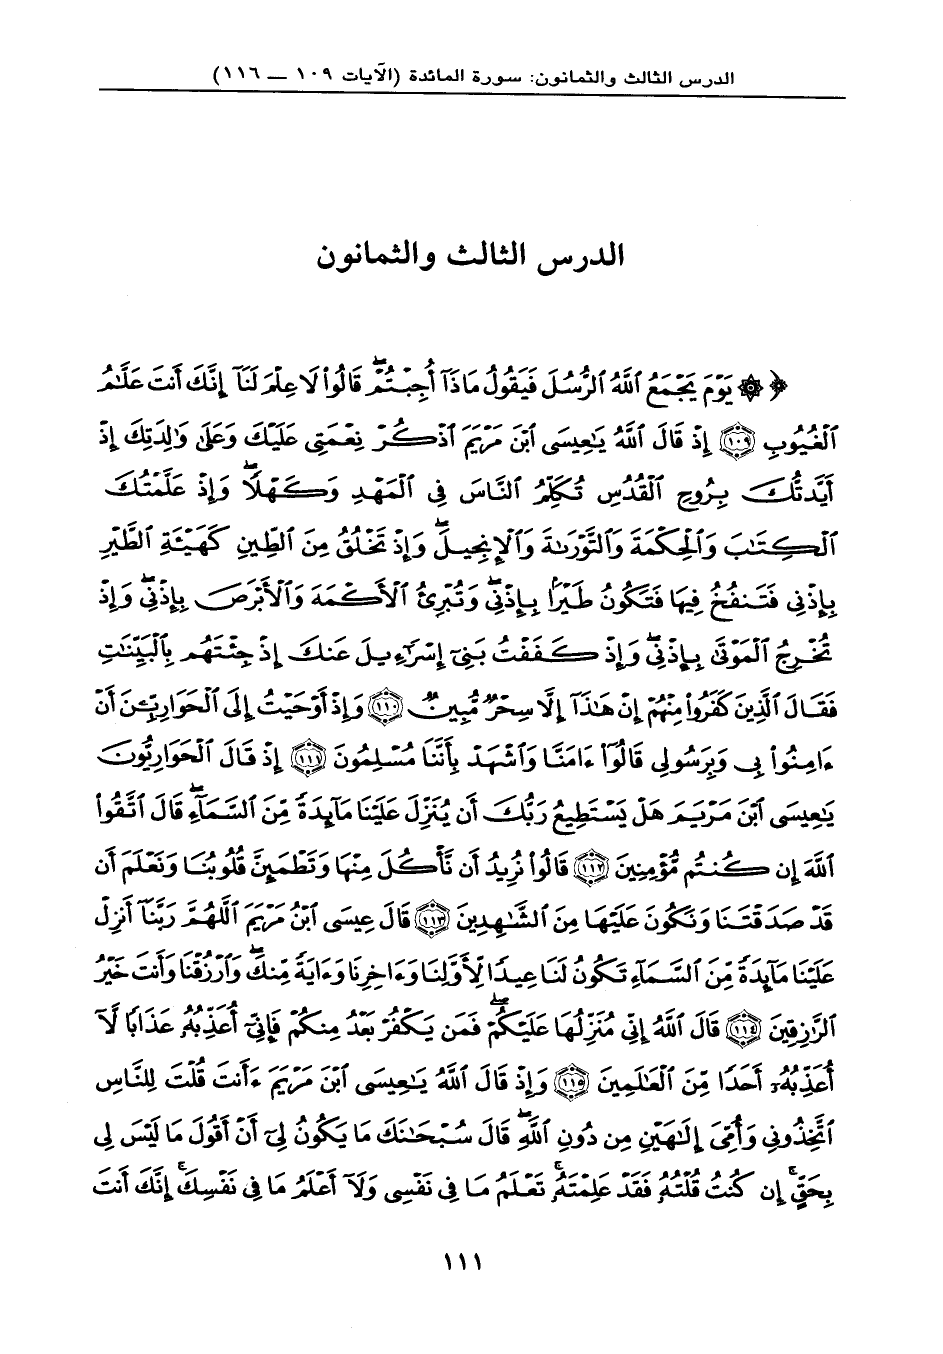 الدرس الثالث والثمانون: سورة المائدة (الآيات ١٠٩ — ١١٦)
الدرس الثالث والثمانون
﴿ ۞ يَوْمَ يَجْمَعُ ٱللَّهُ ٱلرُّسُلَ فَيَقُولُ مَاذَآ أُجِبْتُمْ ۖ قَالُوا۟ لَا عِلْمَ لَنَآ ۖ إِنَّكَ أَنتَ عَلَّٰمُ
ٱلْغُيُوبِ ١٠٩ إِذْ قَالَ ٱللَّهُ يَٰعِيسَى ٱبْنَ مَرْيَمَ ٱذْكُرْ نِعْمَتِى عَلَيْكَ وَعَلَىٰ وَٰلِدَتِكَ إِذْ
أَيَّدتُّكَ بِرُوحِ ٱلْقُدُسِ تُكَلِّمُ ٱلنَّاسَ فِى ٱلْمَهْدِ وَكَهْلًا ۖ وَإِذْ عَلَّمْتُكَ
ٱلْكِتَٰبَ وَٱلْحِكْمَةَ وَٱلتَّوْرَىٰةَ وَٱلْإِنجِيلَ ۖ وَإِذْ تَخْلُقُ مِنَ ٱلطِّينِ كَهَيْـَٔةِ ٱلطَّيْرِ
بِإِذْنِى فَتَنفُخُ فِيهَا فَتَكُونُ طَيْرًۢا بِإِذْنِى ۖ وَتُبْرِئُ ٱلْأَكْمَهَ وَٱلْأَبْرَصَ بِإِذْنِى ۖ وَإِذْ
تُخْرِجُ ٱلْمَوْتَىٰ بِإِذْنِى ۖ وَإِذْ كَفَفْتُ بَنِىٓ إِسْرَٰٓءِيلَ عَنكَ إِذْ جِئْتَهُم بِٱلْبَيِّنَٰتِ
فَقَالَ ٱلَّذِينَ كَفَرُوا۟ مِنْهُمْ إِنْ هَٰذَآ إِلَّا سِحْرٌ مُّبِينٌ ١١٠ وَإِذْ أَوْحَيْتُ إِلَى ٱلْحَوَارِيِّـۧنَ أَنْ
ءَامِنُوا۟ بِى وَبِرَسُولِى قَالُوٓا۟ ءَامَنَّا وَٱشْهَدْ بِأَنَّنَا مُسْلِمُونَ ١١١ إِذْ قَالَ ٱلْحَوَارِيُّونَ
يَٰعِيسَى ٱبْنَ مَرْيَمَ هَلْ يَسْتَطِيعُ رَبُّكَ أَن يُنَزِّلَ عَلَيْنَا مَآئِدَةً مِّنَ ٱلسَّمَآءِ ۖ قَالَ ٱتَّقُوا۟
ٱللَّهَ إِن كُنتُم مُّؤْمِنِينَ ١١٢ قَالُوا۟ نُرِيدُ أَن نَّأْكُلَ مِنْهَا وَتَطْمَئِنَّ قُلُوبُنَا وَنَعْلَمَ أَن
قَدْ صَدَقْتَنَا وَنَكُونَ عَلَيْهَا مِنَ ٱلشَّٰهِدِينَ ١١٣ قَالَ عِيسَى ٱبْنُ مَرْيَمَ ٱللَّهُمَّ رَبَّنَآ أَنزِلْ
عَلَيْنَا مَآئِدَةً مِّنَ ٱلسَّمَآءِ تَكُونُ لَنَا عِيدًا لِّأَوَّلِنَا وَءَاخِرِنَا وَءَايَةً مِّنكَ ۖ وَٱرْزُقْنَا وَأَنتَ خَيْرُ
ٱلرَّٰزِقِينَ ١١٤ قَالَ ٱللَّهُ إِنِّى مُنَزِّلُهَا عَلَيْكُمْ ۖ فَمَن يَكْفُرْ بَعْدُ مِنكُمْ فَإِنِّىٓ أُعَذِّبُهُۥ عَذَابًا لَّآ
أُعَذِّبُهُۥٓ أَحَدًا مِّنَ ٱلْعَٰلَمِينَ ١١٥ وَإِذْ قَالَ ٱللَّهُ يَٰعِيسَى ٱبْنَ مَرْيَمَ ءَأَنتَ قُلْتَ لِلنَّاسِ
ٱتَّخِذُونِى وَأُمِّىَ إِلَٰهَيْنِ مِن دُونِ ٱللَّهِ ۖ قَالَ سُبْحَٰنَكَ مَا يَكُونُ لِىٓ أَنْ أَقُولَ مَا لَيْسَ لِى
بِحَقٍّ ۚ إِن كُنتُ قُلْتُهُۥ فَقَدْ عَلِمْتَهُۥ ۚ تَعْلَمُ مَا فِى نَفْسِى وَلَآ أَعْلَمُ مَا فِى نَفْسِكَ ۚ إِنَّكَ أَنتَ
١١١